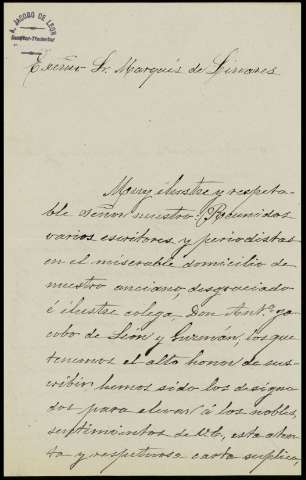 A. JACOBO DE LEON
Escritor-Traductor
Excmo Sr. Marqués de Linares
Muy ilustre y respeta-
ble señor nuestro: Reunidos
varios escritores y periodistas
en el miserable domicilio de
nuestro anciano, desgraciado
é ilustre colega Don Antº Ja-
cobo de León y Guzmán, los que
tenemos el alto honor de sus-
cribir, hemos sido los designa-
dos para elevar á los nobles
sentimientos de V.E. esta aten-
ta y respetuosa carta suplica,